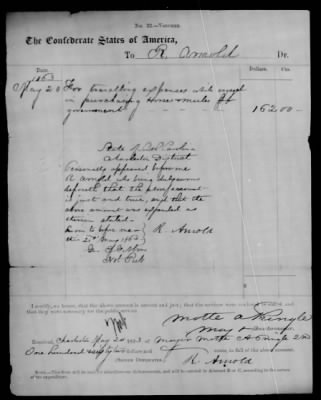 No. 22.—Voucher.
The Confederate States of America,
To R. Arnold Dr.
Date. Dollars. Cts.
1863
May 20 For travelling expenses while engaged
in purchasing Horses & mules for
government 162 00
State of So Carolina
Charleston District
Personally appeared before me
R Arnold who being duly sworn
deposeth that the above account
is just and true, and that the
above amount was expended as
therein stated
Sworn to before me
this 20 May 1863 R. Arnold
Not Pub
I certify, on honor, that the above account is correct and just; that the services were rendered as stated, and that
they were necessary for the public service
Motte A Pringle
Maj &
Received, Charleston May 20 1863, of Major Motte A Pringle
One hundred sixty two dollars and cents, in full of the above account.
(Signed Duplicates.) R. Arnold